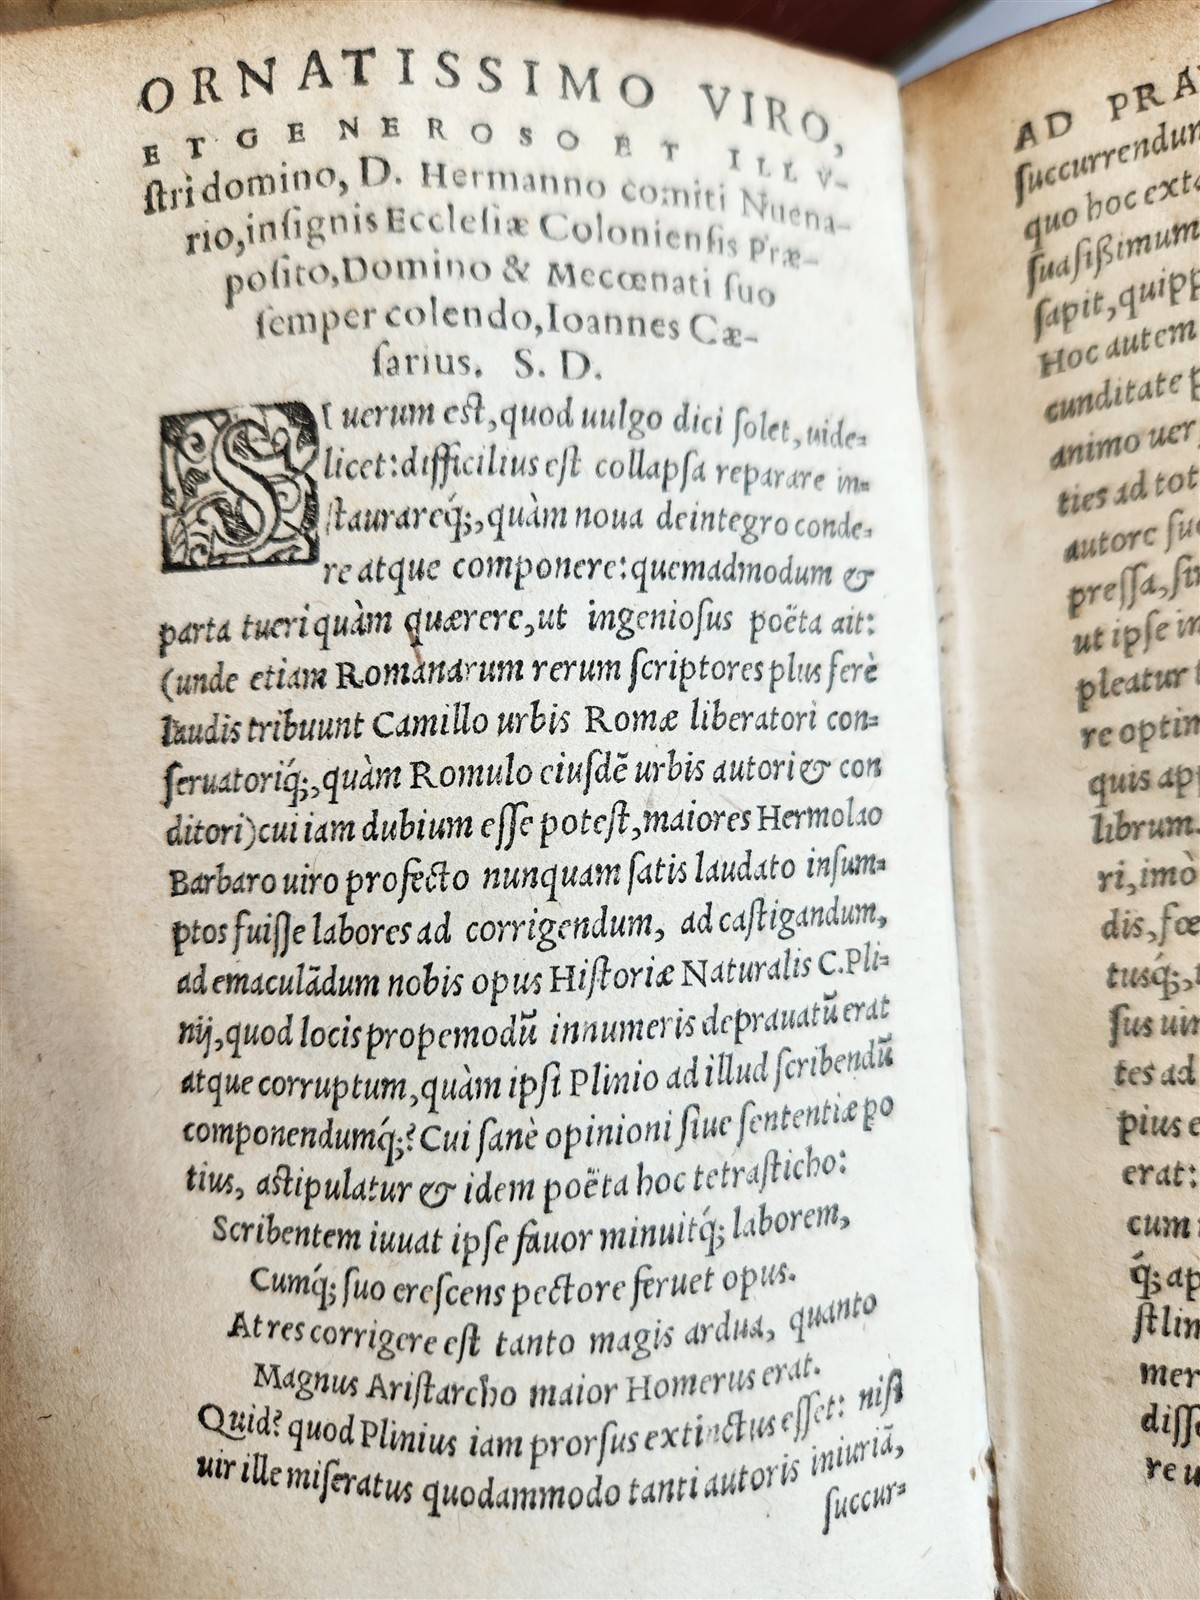 ORNATISSIMO VIRO,
ET GENEROSO ET ILLV-
ſtri domino, D. Hermanno comiti Nuena-
rio, inſignis Eccleſiæ Colonienſis Præ-
poſito, Domino & Mecœnati ſuo
ſemper colendo, Ioannes Cæ-
ſarius. S. D.
SI uerum est, quod uulgo dici ſolet, uide=
licet: difficilius eſt collapſa reparare in=
ſtaurareq́;, quàm noua deintegro conde=
re atque componere: quemadmodum &
parta tueri quàm quærere, ut ingenioſus poëta ait:
(unde etiam Romanarum rerum ſcriptores plus ferè
laudis tribuunt Camillo urbis Romæ liberatori con=
ſeruatoriq́;, quàm Romulo eiuſdē urbis autori & con
ditori) cui iam dubium eſſe poteſt, maiores Hermolao
Barbaro uiro profecto nunquam ſatis laudato inſum=
ptos fuiſſe labores ad corrigendum, ad caſtigandum,
ad emaculādum nobis opus Hiſtoriæ Naturalis C. Pli=
nij, quod locis propemodū innumeris deprauatū erat
atque corruptum, quàm ipſi Plinio ad illud ſcribendū
componendumq́;? Cui ſanè opinioni ſiue ſententiæ po
tius, astipulatur & idem poëta hoc tetraſticho:
Scribentem iuuat ipſe fauor minuitq́; laborem,
Cumq́; ſuo creſcens pectore feruet opus.
At res corrigere eſt tanto magis ardua, quanto
Magnus Ariſtarcho maior Homerus erat.
Quid? quod Plinius iam prorſus extinctus eſſet: niſi
uir ille miſeratus quodammodo tanti autoris iniuriā,
ſuccur=
AD PRA
ſuccurrendum
quo hoc exta
ſuaſißimum
ſapit, quipp
Hoc autem
cunditate p
animo uer
ties ad tot
autore ſu
preſſa, ſin
ut ipſe in
pleatur
re optim
quis app
librum.
ri, imò
dis, fœ
tusq́;,
ſus uir
tes ad
pius e
erat:
cum
q́; ap
ſtlin
mer
diſſ
re u